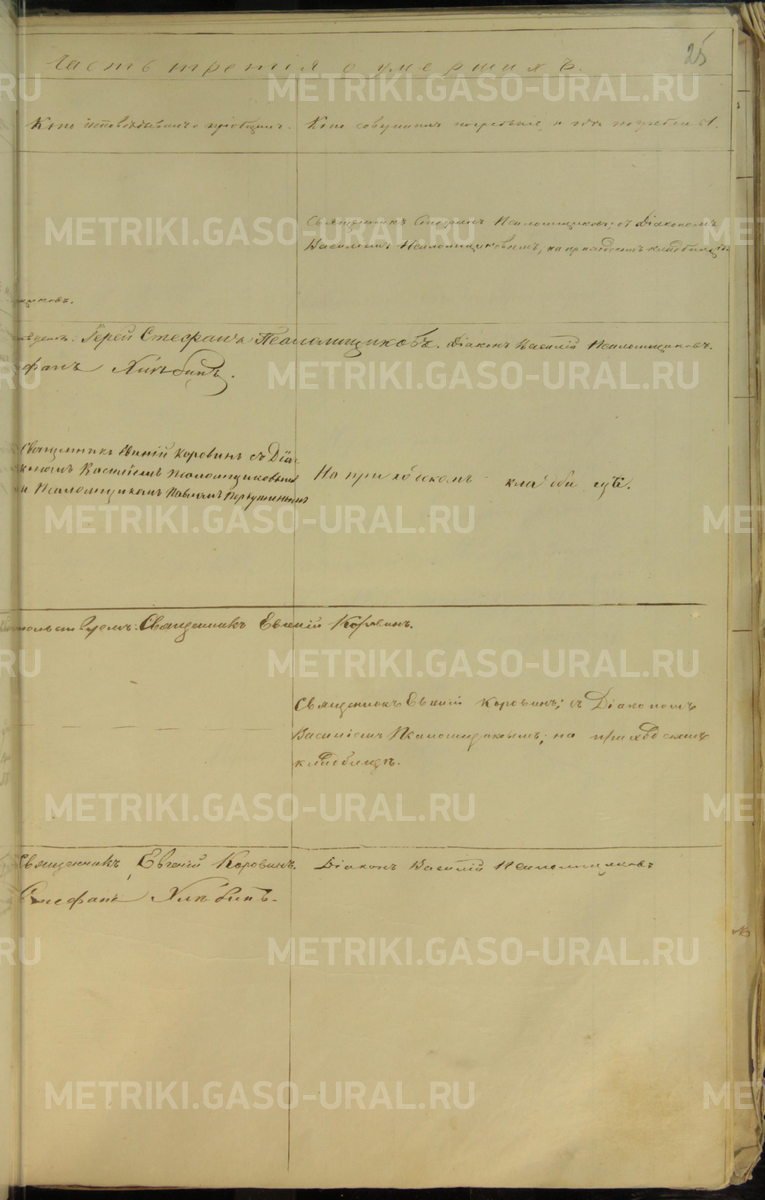 25
Часть третія о умершихъ.
Кто исповѣдывалъ и пріобщалъ.
Кто совершалъ погребеніе и гдѣ погребены.
Священникъ Стефанъ Псаломщиковъ; съ Діакономъ
Василіемъ Псаломщиковымъ, на приходскомъ кладбищѣ
Іерей Стефанъ Псаломщиковъ. Діаконъ Василій Псаломщиковъ.
Священникъ Евгеній Коровинъ съ Діа-
кономъ Василіемъ Псаломщиковымъ
и Псаломщикомъ Павломъ
На приходскомъ кладбищѣ.
Священникъ Евгеній Коровинъ.
Священникъ Евгеній Коровинъ; съ Діакономъ
Василіемъ Псаломщиковымъ; на приходскомъ
кладбищѣ.
Священникъ Евгеній Коровинъ. Діаконъ Василій Псаломщиковъ
Стефанъ
METRIKI.GASO-URAL.RU